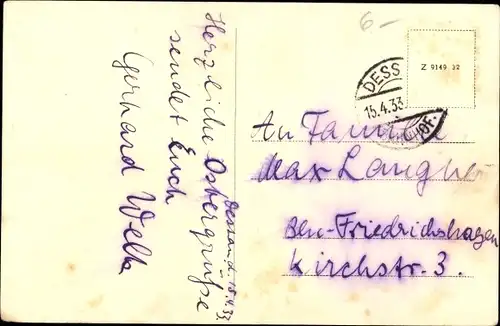 Dessau d. 15.4.33.
Herzliche Ostergrüße
sendet Euch
Gerhard Welk
6-
Z 9149 32
DESS
15.4.33
HOF.
An Familie
Max Langner
Bln-Friedrichshagen
Kirchstr. 3.